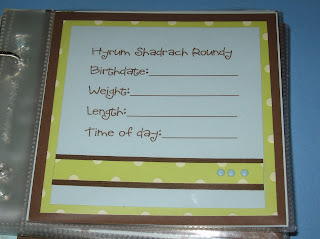 Hyrum Shadrach Roundy
Birthdate:
Weight:
Length:
Time of day: